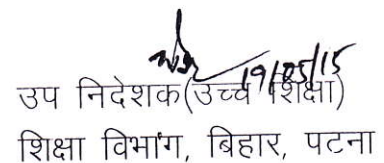 19/05/15
उप निदेशक(उच्च शिक्षा)
शिक्षा विभाग, बिहार, पटना